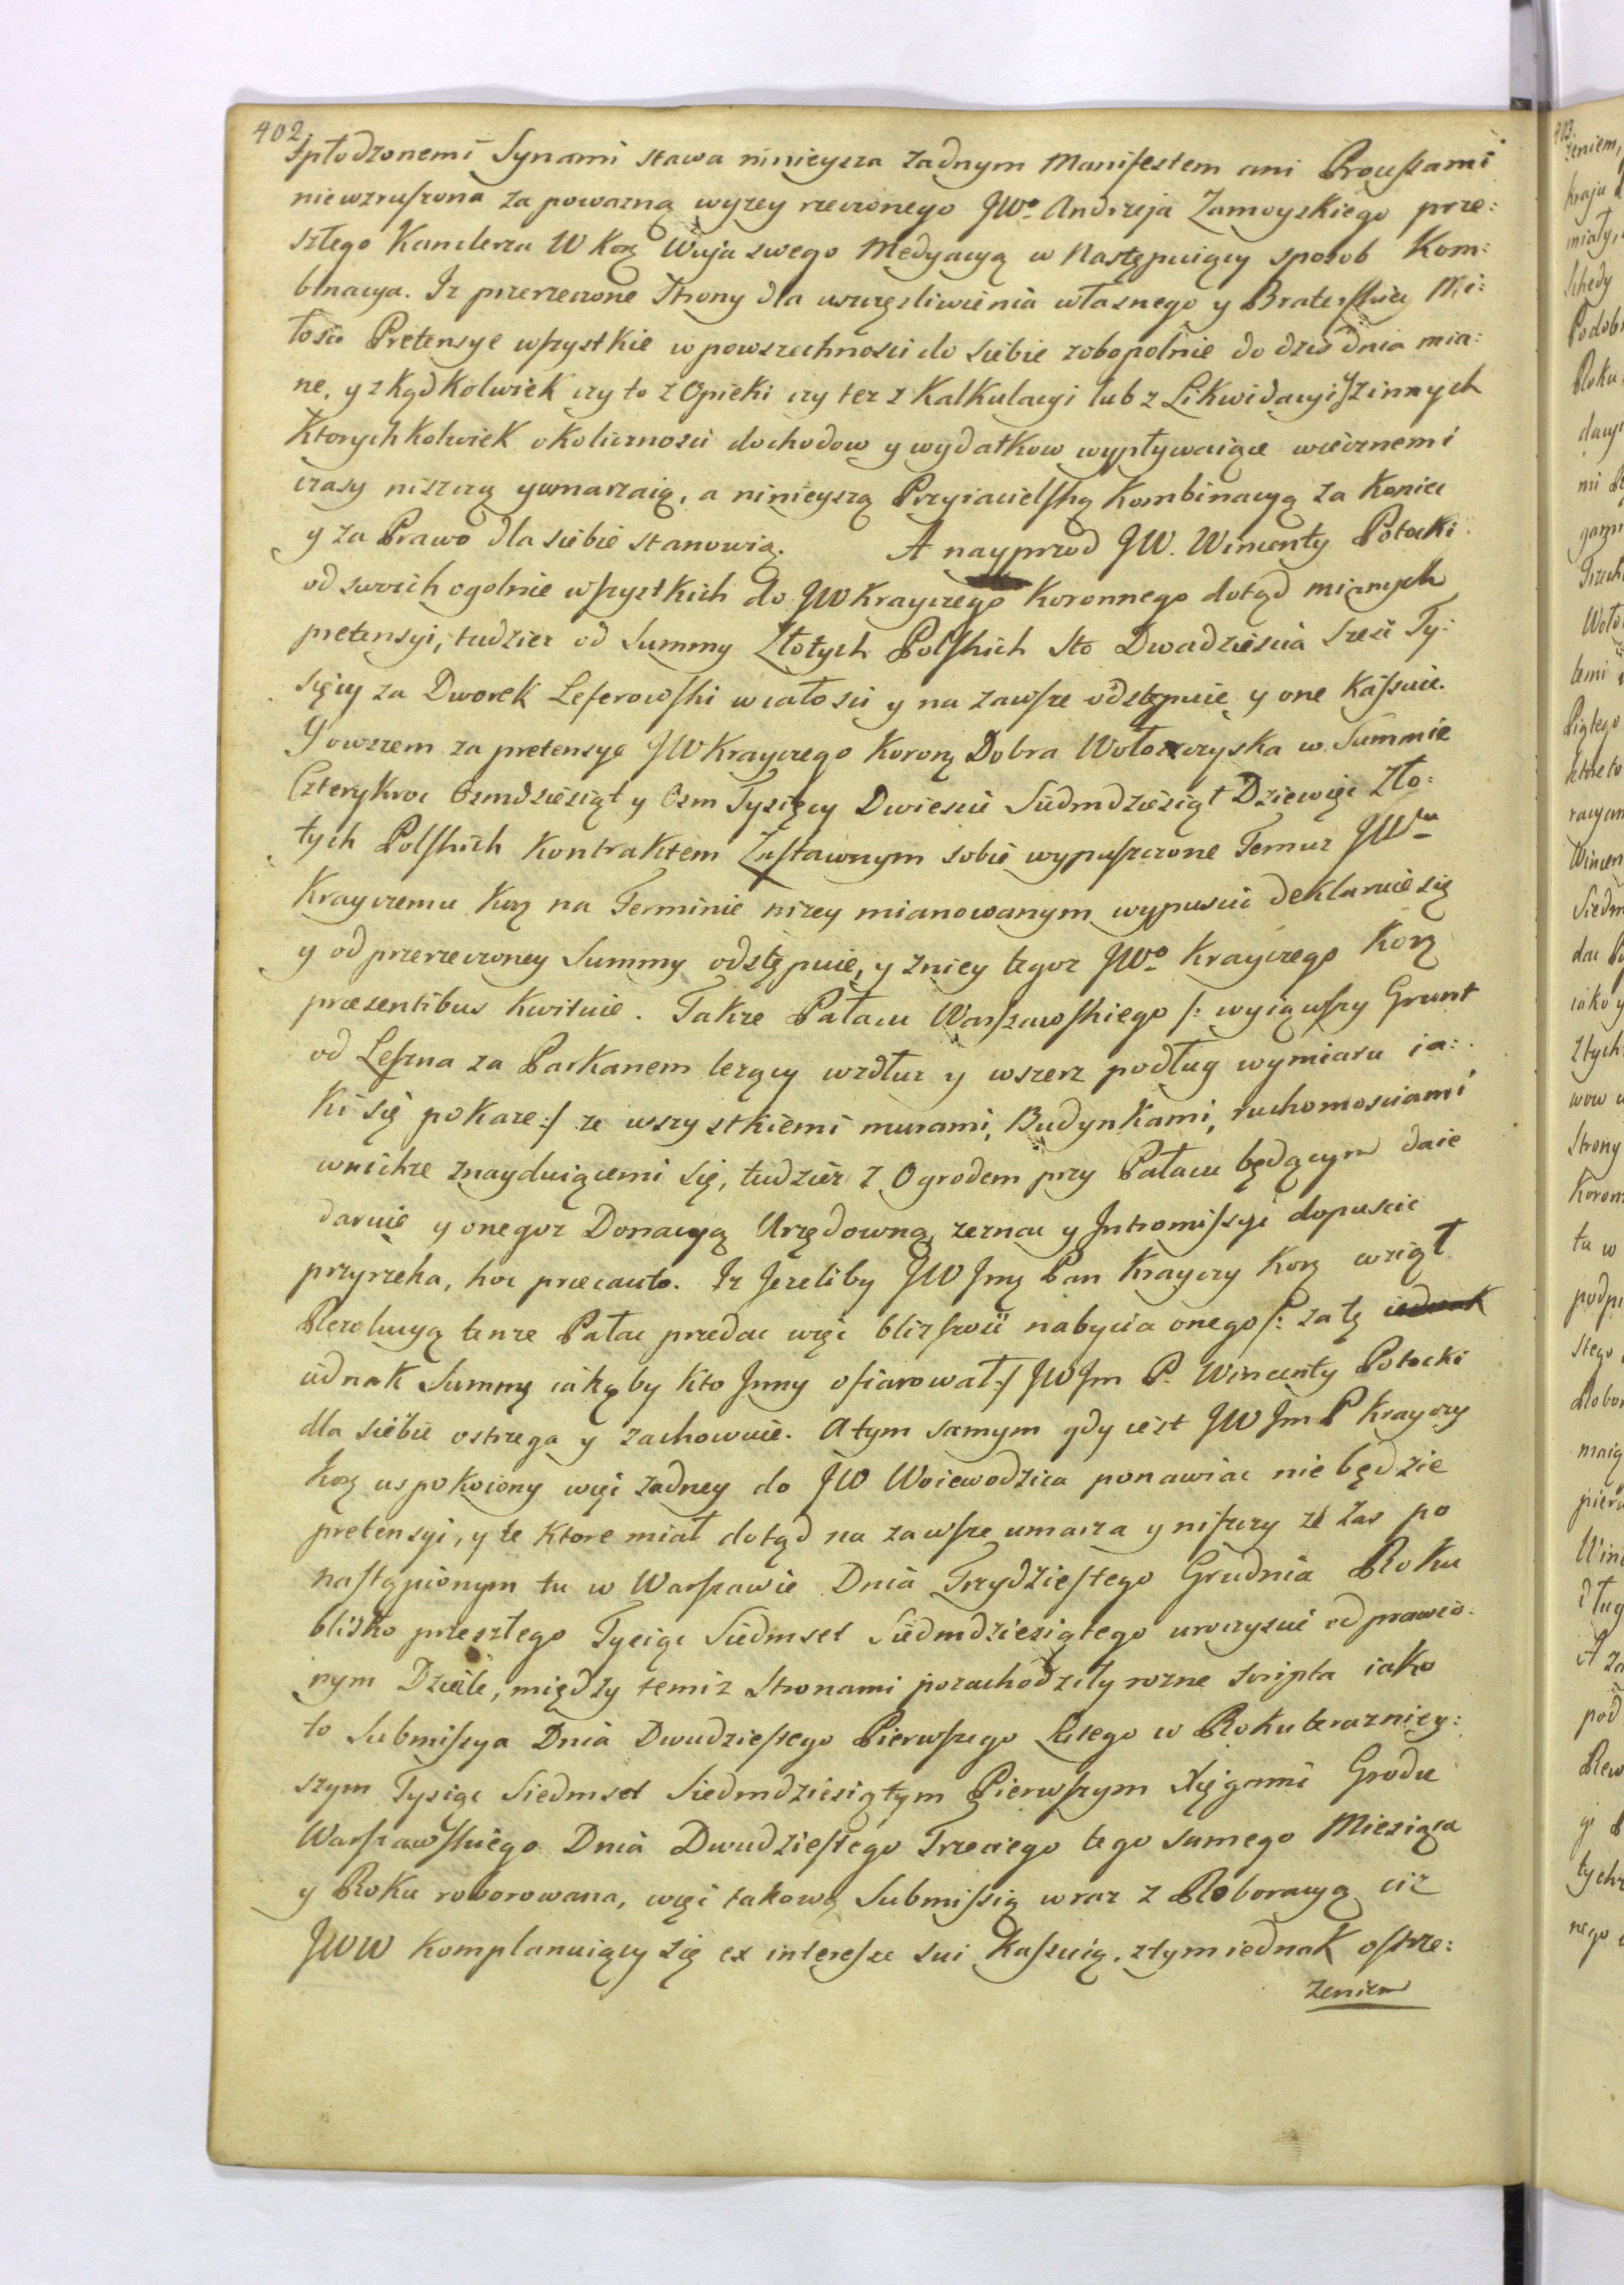 402
Spłodzonemi Synami stawa ninieysza żadnym Manifestem ani Proceßami
niewzrußona za powazną wyzey rzeczonego JWo Andrzeja Zamoyskiego prze:
szłego Kanclerza W Korą Wuja swego Medyacyą w Następuiący sposob Kom:
binacya. Iz przerzeczone Strony dla uszczęsliwienia własnego y Braterskiey Mi:
łosci Pretensye wszystkie w powszechnosci do siebie zobopolnie do dzis dnia mia:
ne, y zkądkolwiek czy to z Opieki czy tez z Kalkulacyi lub z Likwidacyi y z innych
Ktorychkolwiek okolicznosci dochodow y wydatkow wypływaiące wiecznemi
czasy niszczą y umarzaią, a ninieyszą Przyiacielską Kombinacyą za Koniec
y za Prawo dla siebie stanowią. A nayprzod JW. Wincenty Potocki
od swoich ogolnie wszystkich do JW Krayczego Koronnego dotąd mianych
pretensyi, tudziez od Summy Złotych Polskich Sto Dwadziescia szesc Ty:
sięcy za Dworek Leferowski w całosci y na zawsze odstępuie y one Kassuie.
Y owszem za pretensye JW Krayczego Korong Dobra Wołoczyska w Summie
Czterykroc Osmdziesiąt y Osm Tysięcy Dwiescie Siedmdziesiąt Dziewięc Zło:
tych Polskich Kontraktem Zastawnym sobie wypuszczone Temuz JWu
Krayczemu Korg na Terminie nizey mianowanym wypuscic deklaruie się
y od przerzeczoney Summy odstępuie, y zniey tegoz JWo Krayczego Korg
præsentibus Kwituie. Takze Pałacu Warszawskiego /: wyiąwszy Grunt
od Leszna za Parkanem lezący wzdłuz y wszerz podług wymiaru ia:
ki się pokaze :/ ze wszystkiemi murami, Budynkami, ruchomosciami
wnichze znayduiącemi się, tudziez z Ogrodem przy Pałacu będącym daie
daruie y onegoz Donacyą Urzędowną zeznac y Intromissyi dopuscic
przyrzeka, hoc præcauto. Iz Jezeliby JW Jmg Pan Krayczy Korg wziął
Rezolucyą tenze Pałac przedac więc blizszosci nabycia onego /: za tę iednak
iednak Summę iakąby kto Inny ofiarował :/ JW Jm P. Wincenty Potocki
dla siebie ostrzega y zachowuie. A tym samym gdy iest JW Jm P Krayczy
Korg uspokoiony więc zadney do JW Woiewodzica ponawiac nie będzie
pretensyi, y te ktore miał dotąd na zawsze umarza y niszczy ze zas po
nastąpionym tu w Warszawie Dnia Trzydziestego Grudnia Roku
blisko przeszłego Tysiąc Siedmset Siedmdziesiątego uroczyscie odprawio:
nym Dziele, między temiz Stronami pozachodziły rozne scripta iako
to Submissya Dnia Dwudziestego Pierwszego Lutego w Roku terazniey:
szym Tysiąc Siedmset Siedmdziesiątym Pierwszym Xięgami Grodu
Warszawskiego Dnia Dwudziestego Trzeciego tego samego Miesiąca
y Roku roborowana, więc takową Submissią wraz z Roboracyą ciz
JWW Komplanuiący się ex interesse sui Kassuią, z tym iednak ostrze:
zeniem